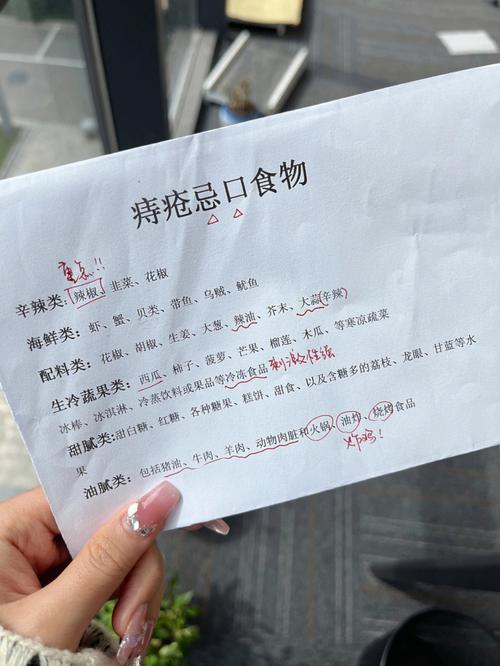 痔疮忌口食物
重点!!
辛辣类:辣椒、韭菜、花椒
海鲜类:虾、蟹、贝类、带鱼、乌贼、鱿鱼
配料类:花椒、胡椒、生姜、大葱、辣油、芥末、大蒜(辛辣)
生冷蔬果类:西瓜、柿子、菠萝、芒果、榴莲、木瓜、等寒凉蔬菜
冰棒、冰淇淋、冷蒸饮料或果品等冷冻食品 刺激性强
甜腻类:甜白糖、红糖、各种糖果、糕饼、甜食、以及含糖多的荔枝、龙眼、甘蓝等水
果
油腻类:包括猪油、牛肉、羊肉、动物肉脏和火锅、油炸、烧烤食品
炸鸡!